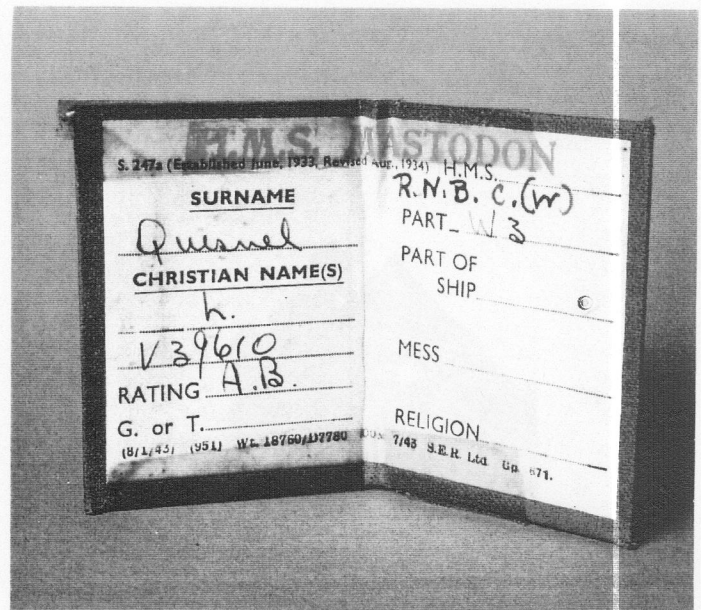 H.M.S. MASTODON
S. 247a (Established June, 1933, Revised Aug., 1934) H.M.S.
SURNAME
Quesnel
CHRISTIAN NAME(S)
L.
V39610
RATING A.B.
G. or T.
(8/1/43) (951) Wt. 18760/D7780 7/43 S.E.R. Ltd. Gp. 671.
R.N.B.C.(W)
PART W3
PART OF
SHIP
MESS
RELIGION